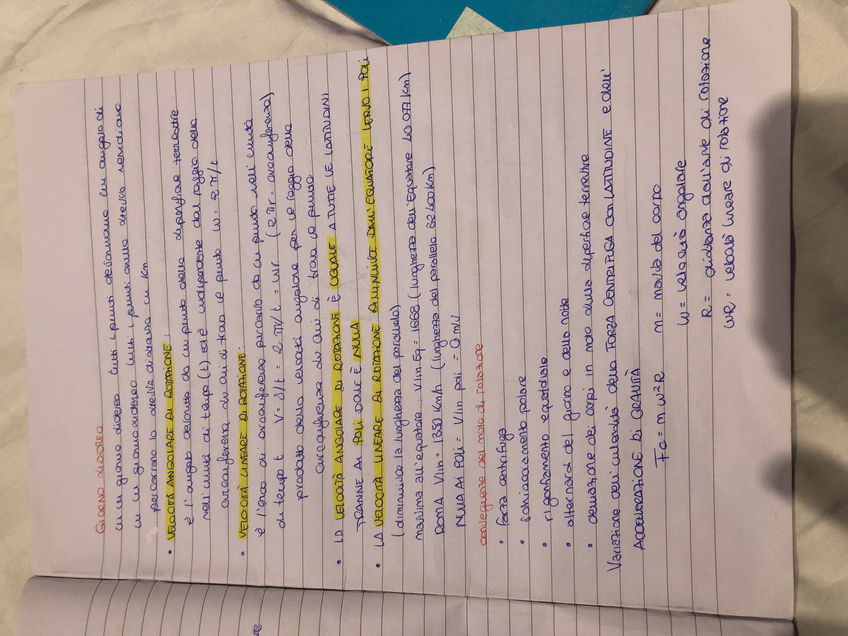 GIORNO SIDEREO
in un giorno sidereo tutti i punti descrivono un angolo di
in un giorno sidereo tutti i punti sullo stesso meridiano
percorrono la stessa distanza in km
• VELOCITÀ ANGOLARE DI ROTAZIONE:
è l'angolo descritto da un punto della superficie terrestre
nell'unità di tempo (t) ed è indipendente dal raggio della
circonferenza su cui si trova il punto W = 2π/t
• VELOCITÀ LINEARE DI ROTAZIONE:
è l'arco di circonferenza percorso da un punto nell'unità
di tempo t V = S/t = 2πr/t = Wr (2πr = circonferenza)
prodotto della velocità angolare per il raggio della
circonferenza su cui si trova il punto
• LA VELOCITÀ ANGOLARE DI ROTAZIONE È UGUALE A TUTTE LE LATITUDINI
TRANNE AI POLI DOVE È NULLA
• LA VELOCITÀ LINEARE DI ROTAZIONE DIMINUISCE DALL'EQUATORE VERSO I POLI
(diminuisce la lunghezza del parallelo)
massima all'equatore: Vlin eq = 1668 (lunghezza dell'Equatore 40 077 km)
ROMA Vlin = 1350 Km/h (lunghezza del parallelo 32 400 km)
NULLA AI POLI = Vlin poli = 0 m/s
conseguenze del moto di rotazione
• forza centrifuga
• schiacciamento polare
• rigonfiamento equatoriale
• alternarsi del giorno e della notte
• deviazione dei corpi in moto sulla superficie terrestre
Variazione dell'intensità della FORZA CENTRIFUGA con LATITUDINE e dell'
ACCELERAZIONE DI GRAVITÀ
Fc = m w²R m = massa del corpo
W = velocità angolare
R = distanza dall'asse di rotazione
WR = velocità lineare di rotazione